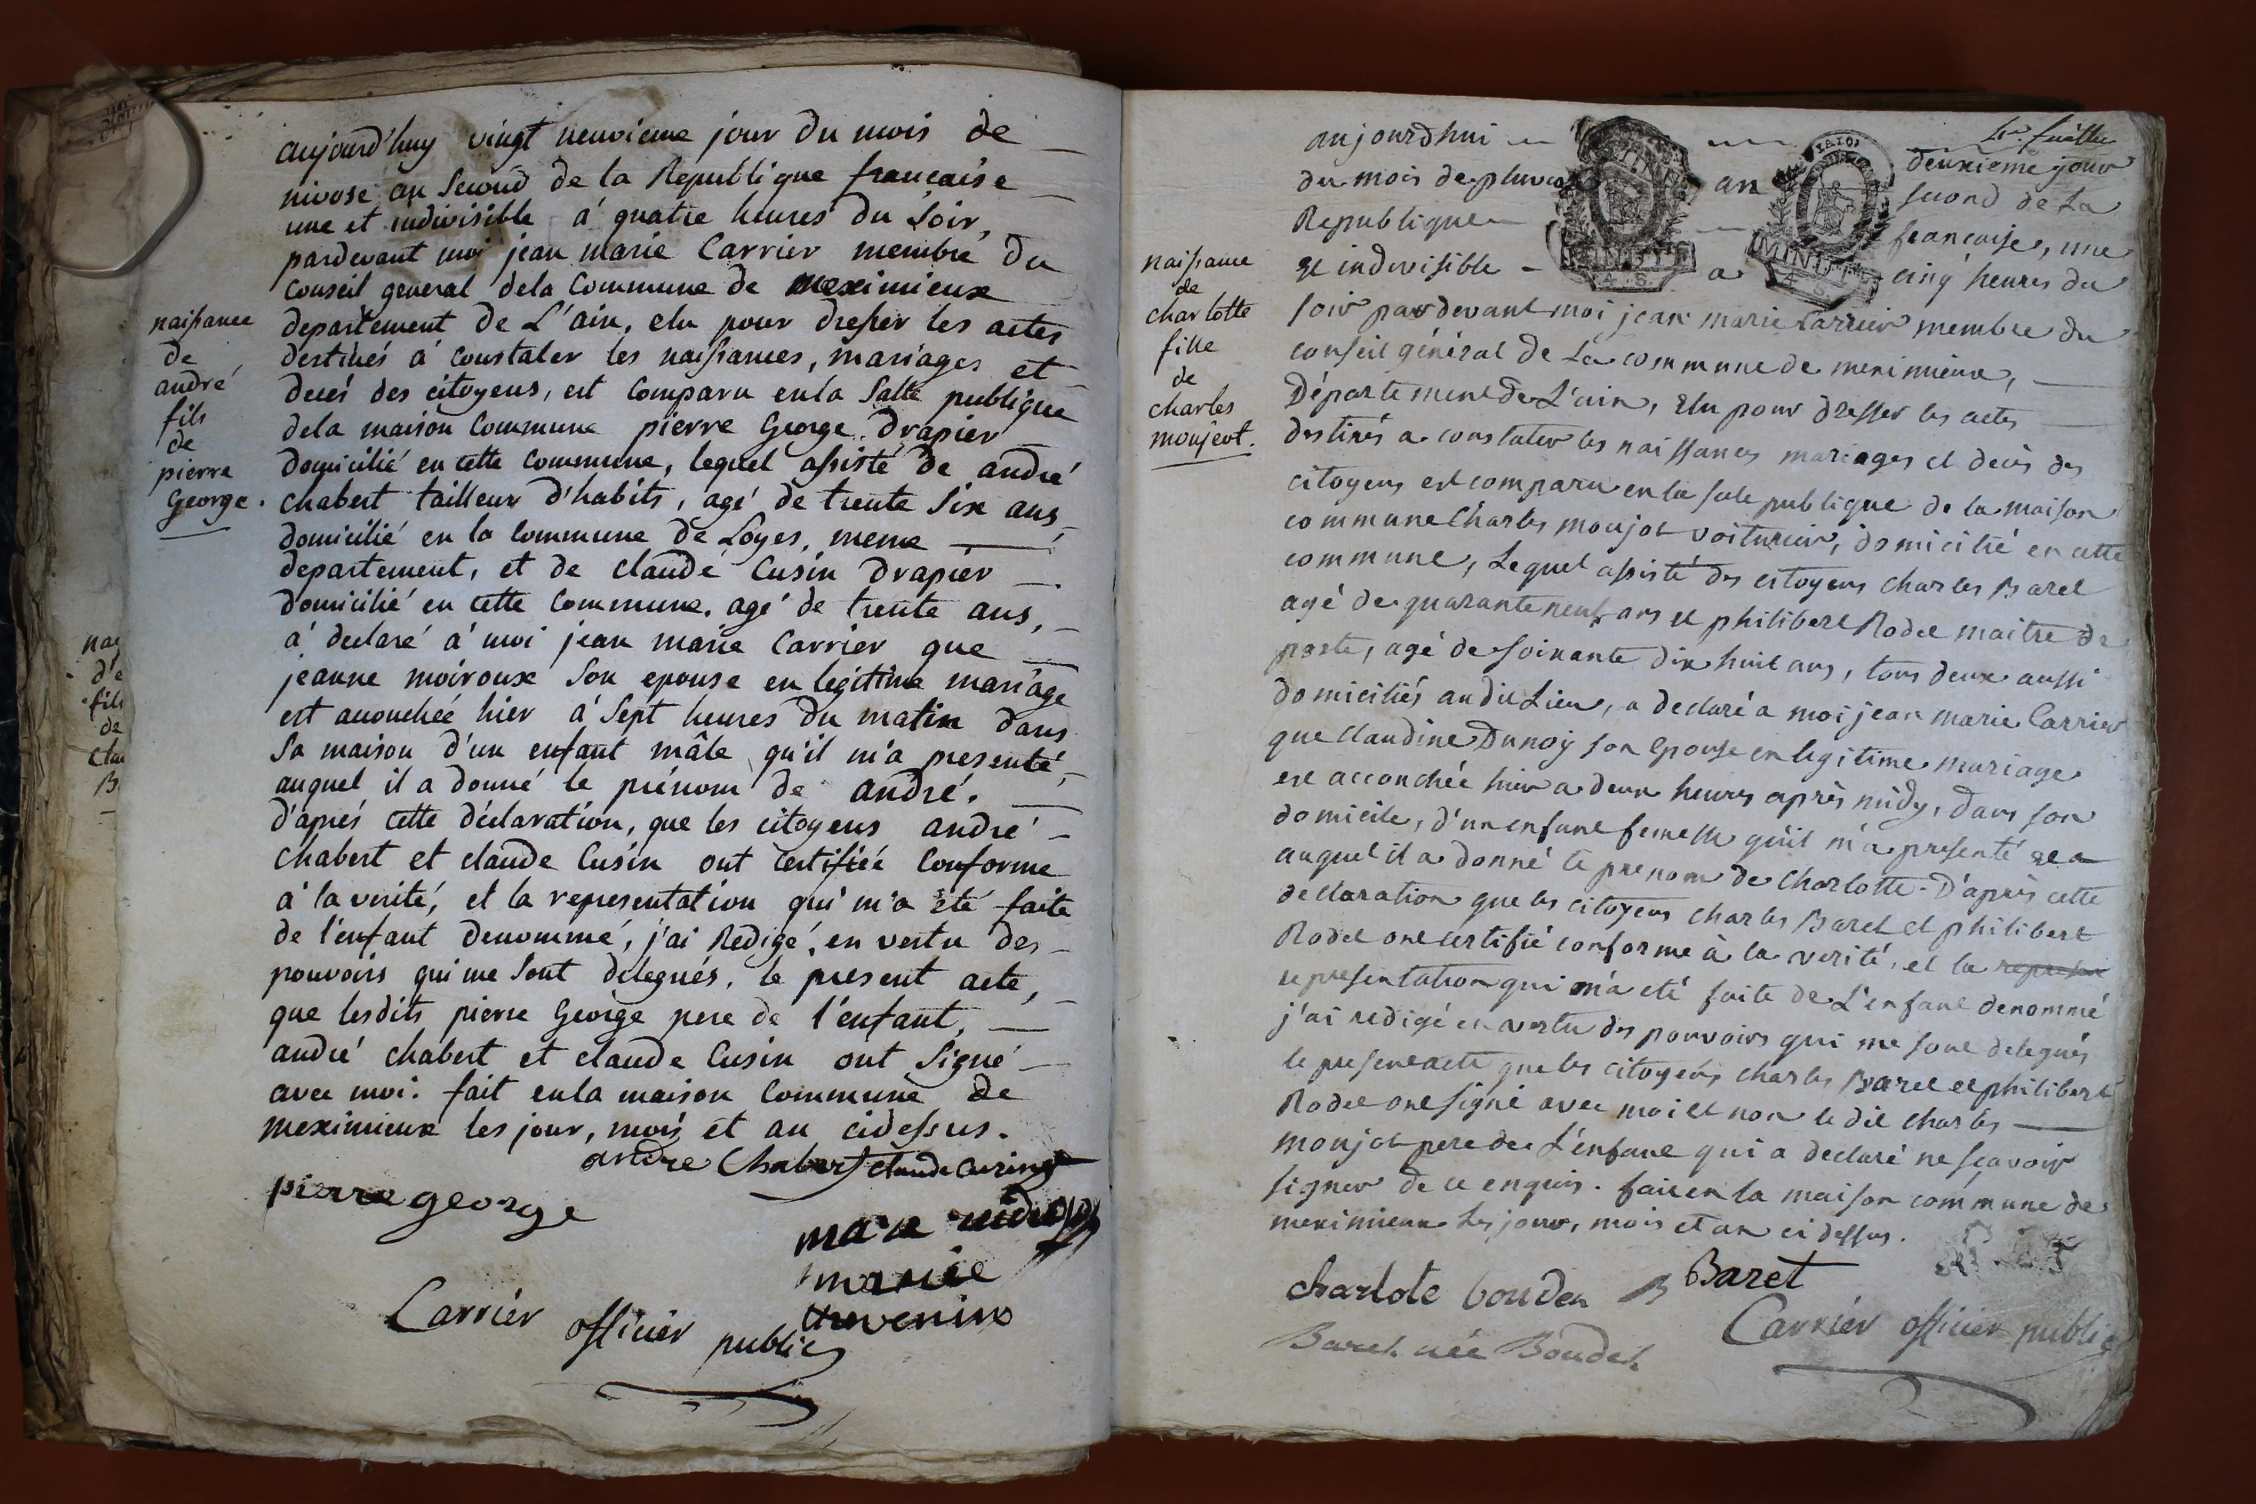 aujourd'huy vingt neuvieme jour du mois de
nivose an second de la Republique francaise
une et indivisible a quatre heures du soir,
pardevant moi jean marie Carrier membre du
conseil general dela Commune de meximieux
departement de L'ain, elu pour dresser les actes
destinés a constater les naissances, mariages et
decés des citoyens, est comparu enla salle publique
dela maison Commune pierre George Drapier
domicilié en cette Commune, lequel assisté de andré
chabert tailleur d'habits, agé de trente six ans
domicilié en la Commune de Loyes, meme
departement, et de claude Cusin Drapier
domicilié en cette Commune. agé de trente ans,
a declaré a moi jean marie Carrier que
jeanne moiroux son epouse en legitime mariage
est accouchée hier a sept heures du matin dans
sa maison d'un enfant mâle qu'il m'a presenté,
auquel il a donné le prénom de andré.
d'aprés cette déclaration, que les citoyens andré
chabert et claude Cusin ont certifiée Conforme
a la verité, et la representation qui m'a eté faite
de l'enfant denommé, j'ai Redigé, en vertu des
pouvoirs qui me sont delegués, le present acte,
que lesdits pierre George pere de l'enfant,
andré chabert et claude Cusin ont signé
avec moi. fait enla maison Commune de
meximieux les jour, mois et an cidessus.
andre Chabert claude cusin
pierre george
marie
Carrier officier public
naissance
de
andré
fils
de
pierre
George.
naissance
de
charlotte
fille
de
charles
monjeot.
aujourdhui deuxieme jour
du mois de pluviose an second de La
Republique francaise, une
et indivisible a cinq heures du
soir pardevant moi jean marie Carrier membre du
conseil général de La commune de meximieux,
Département de L'ain, Elu pour dresser les actes
destinés a constater les naissances mariages et decès des
citoyens est comparu en la sale publique de la maison
commune Charles monjot voiturier, domicilié en cette
commune, Lequel assisté des citoyens charles Baret
agé de quarante neuf ans et philibert Rodet maitre de
poste, agé de soixante dix huit ans, tous deux aussi
domiciliés audit Lieu, a declaré a moi jean marie Carrier
que claudine Dunoy son epouse en legitime mariage
est accouchée hier a deux heures après midy, dans son
domicile, d'un enfant femelle qu'il m'a presenté et a
auquel il a donné le prenom de Charlotte. D'après cette
declaration que les citoyens charles Baret et philibert
Rodet ont certifié conforme à la verité, et la
representation qui m'a eté faite de L'enfant denommé
j'ai redigé en vertu des pouvoirs qui me sont delegués
le present acte que les citoyens charles Baret et philibert
Rodet ont signé avec moi et non le dit charles
monjot pere de L'enfant qui a declaré ne sçavoir
signer de ce enquis. fait en la maison commune de
meximieux Les jour, mois et an ci dessus.
charlote boudet B Baret
Baret née Boudet
Carrier officier public